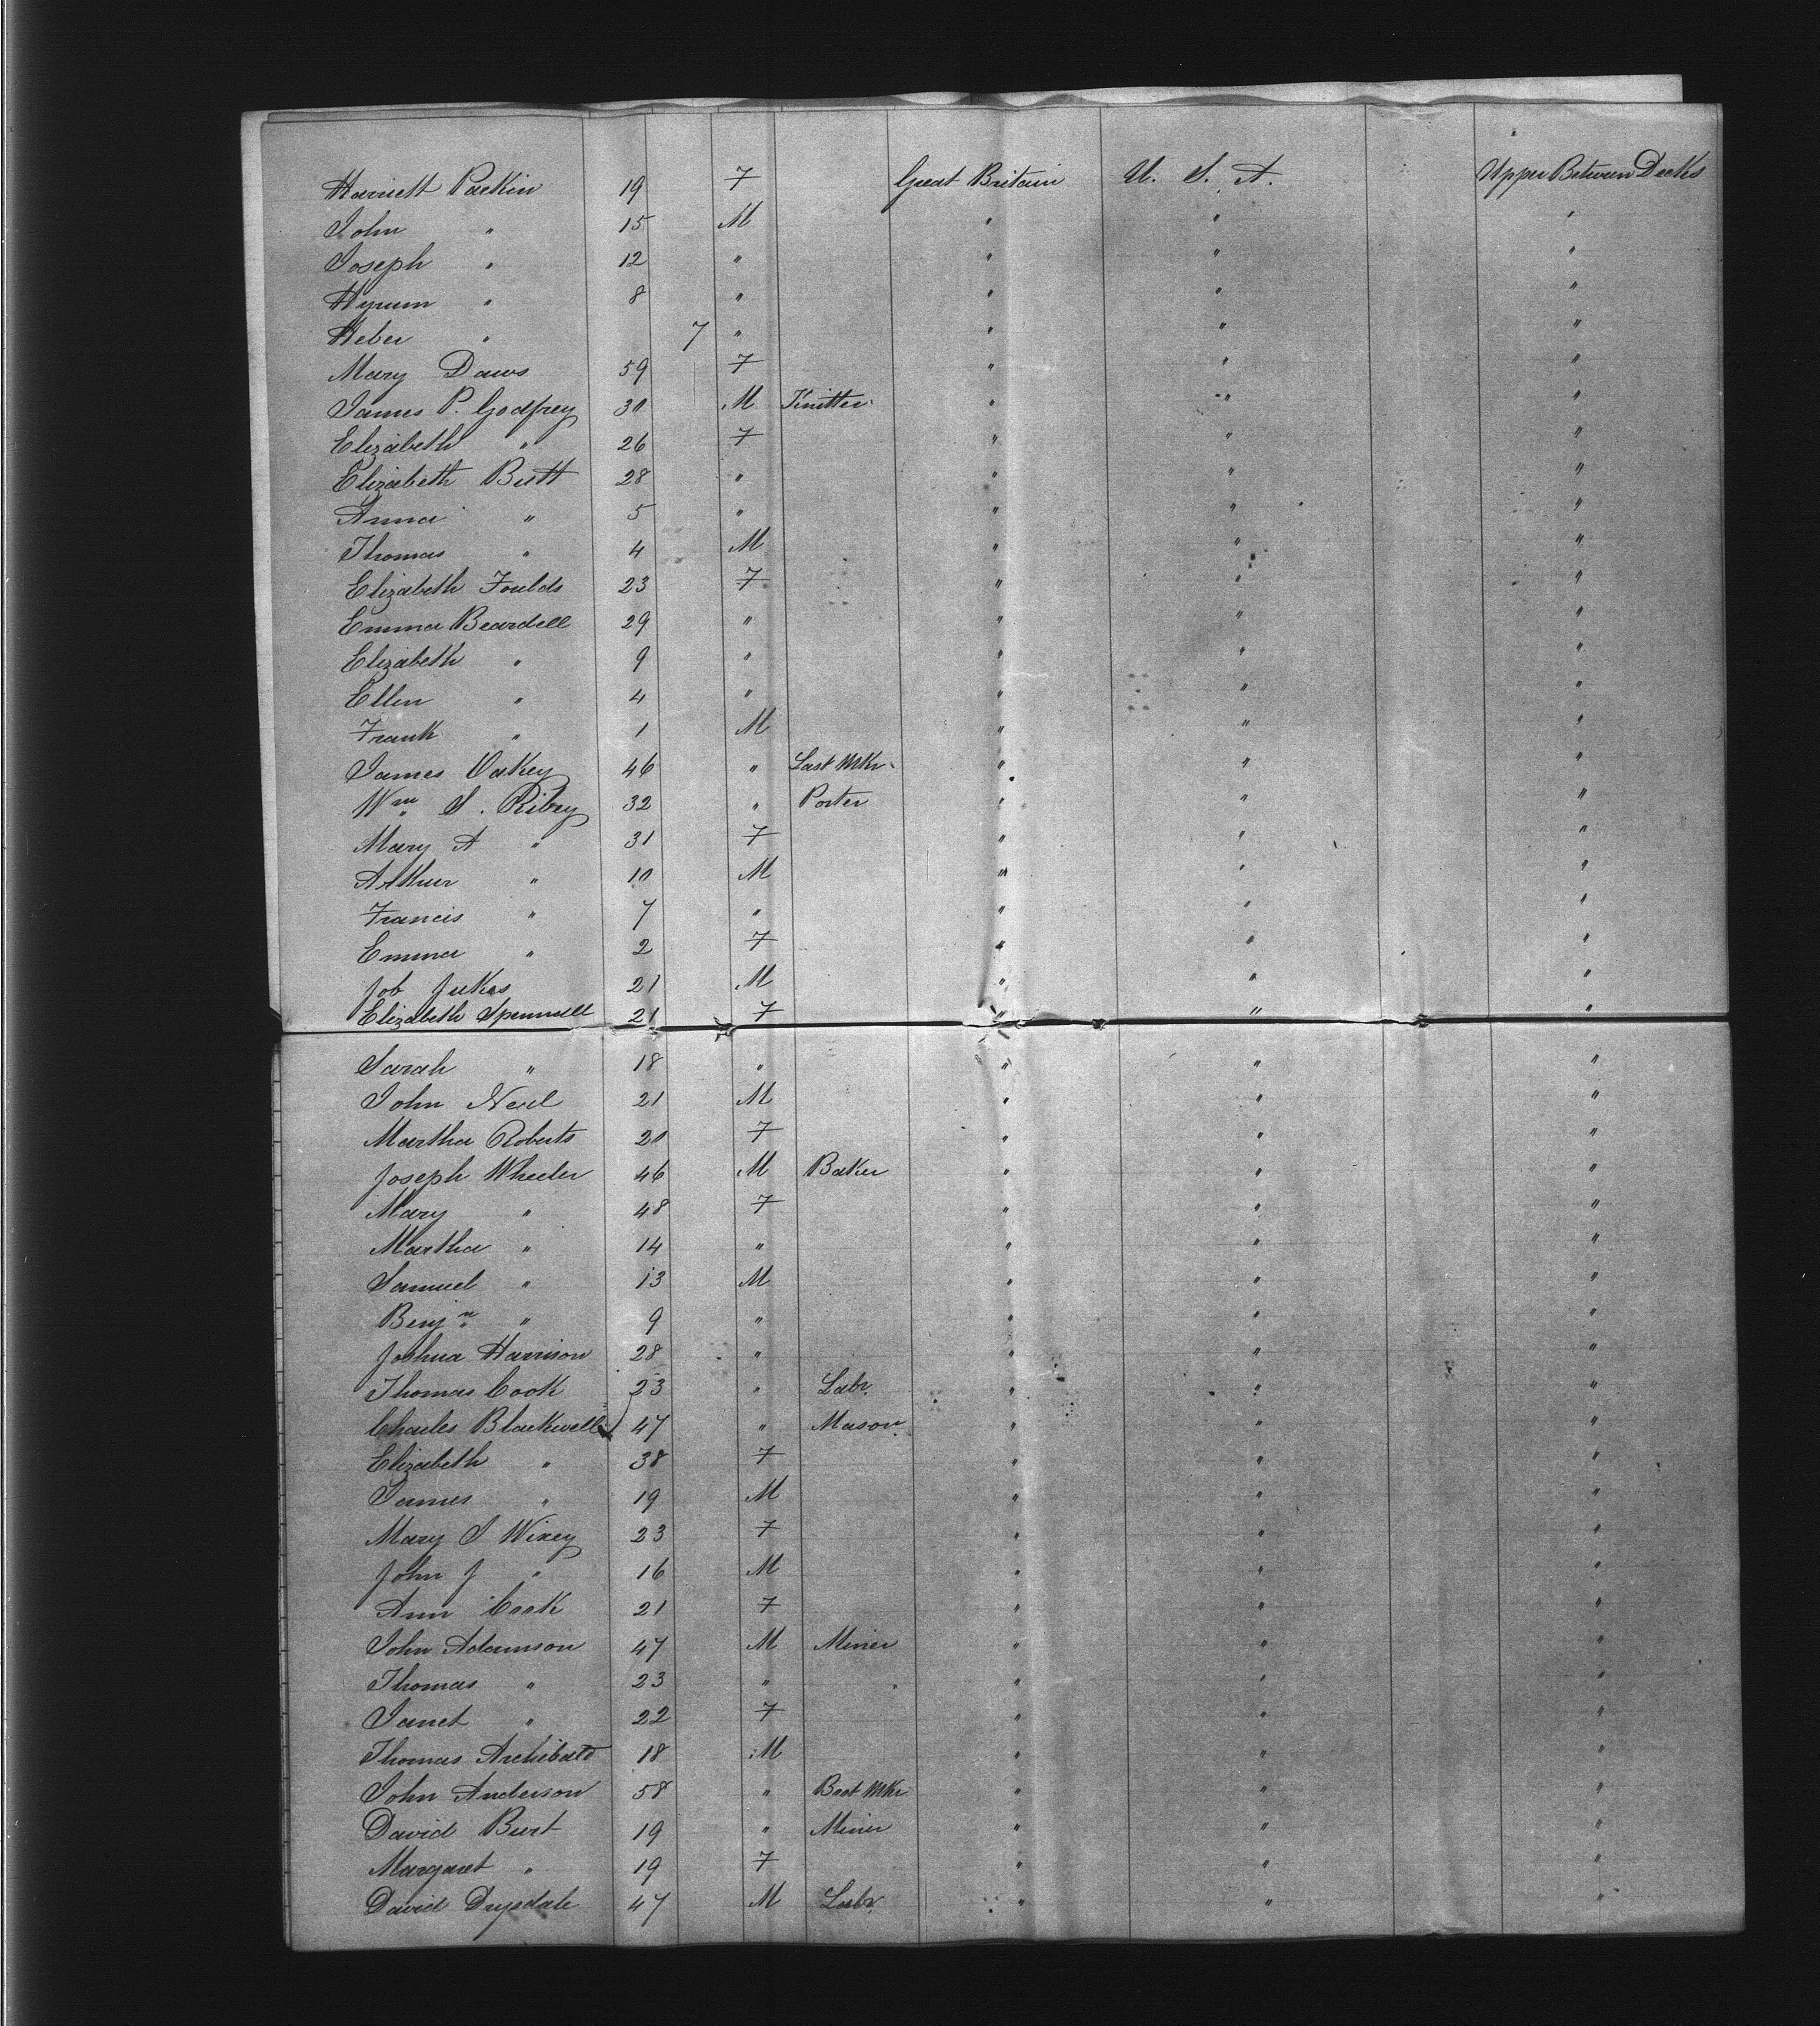 Harriett Parkin 19 F Great Britain U. S. A. Upper Between Decks
John " 15 M " " "
Joseph " 12 " " " "
Hyrum " 8 " " " "
Heber " 7 " " " "
Mary Daws 59 F " " "
James P. Godfrey 30 M Knitter " " "
Elizabeth " 26 F " " "
Elizabeth Butt 28 " " " "
Anna " 5 " " " "
Thomas " 4 M " " "
Elizabeth Foulds 23 F " " "
Emma Beardell 29 " " " "
Elizabeth " 9 " " " "
Ellen " 4 " " " "
Frank " 1 M " " "
James Oakey 46 " Last Mkr " " "
Wm S. Ribey 32 " Porter " " "
Mary A " 31 F " " "
Arthur " 10 M " " "
Francis " 7 " " " "
Emma " 2 F " " "
Job Jukes 21 M " " "
Elizabeth Spennell 21 F " " "
Sarah " 18 " " " "
John Neal 21 M " " "
Martha Roberts 20 F " " "
Joseph Wheeler 46 M Baker " " "
Mary " 48 F " " "
Martha " 14 " " " "
Samuel " 13 M " " "
Benjn " 9 " " " "
Joshua Harrison 28 " " " "
Thomas Cook 23 " Labr. " " "
Charles Blackwell 47 " Mason " " "
Elizabeth " 38 F " " "
James " 19 M " " "
Mary S Wixey 23 F " " "
John J " 16 M " " "
Ann Cook 21 F " " "
John Adamson 47 M Miner " " "
Thomas " 23 " " " "
Janet " 22 F " " "
Thomas Archibald 18 M " " "
John Anderson 58 " Boot Mkr " " "
David Burt 19 " Miner " " "
Margaret " 19 F " " "
David Drysdale 47 M Labr. " " "